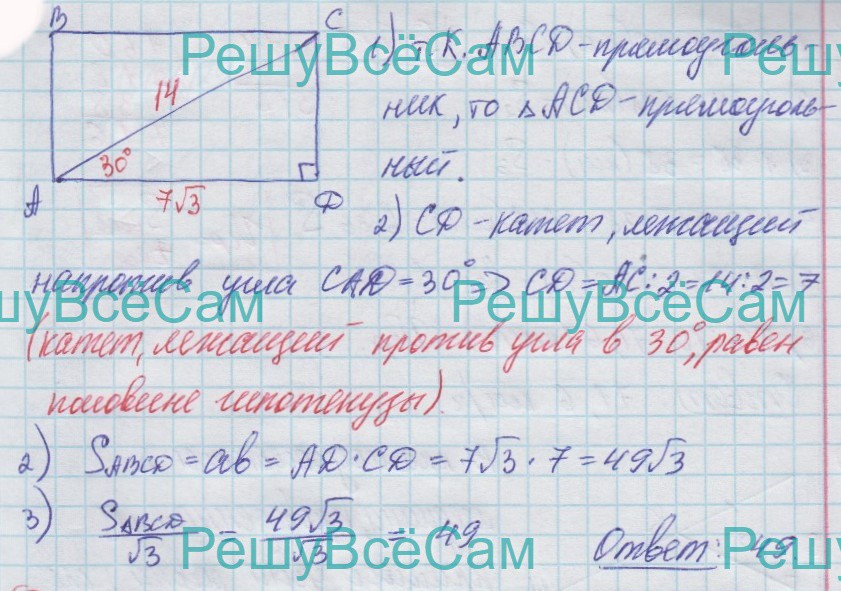 B C
14
30°
A 7√3 D
1) т.к. ABCD - прямоуголь-
ник, то △ACD - прямоуголь-
ный.
2) CD - катет, лежащий
напротив угла CAD = 30° => CD = AC : 2 = 14 : 2 = 7
(катет, лежащий против угла в 30°, равен
половине гипотенузы).
2) SABCD = ab = AD · CD = 7√3 · 7 = 49√3
3) SABCD/√3 = 49√3/√3 = 49
Ответ: 49
РешуВсёСам РешуВсёСам
РешуВсёСам РешуВсёСам
РешуВсёСам РешуВсёСам